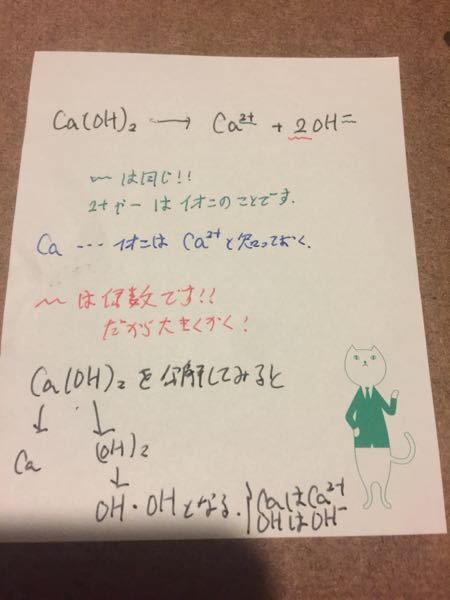 Ca(OH)₂ → Ca²⁺ + 2OH⁻
〜は同じ!!
2+や−はイオンのことです.
Ca … イオンは Ca²⁺と知っておく.
〜は係数です!!
だから大きくかく!
Ca(OH)₂を分解してみると
↓ ↓
Ca (OH)₂
↓
OH・OHとなる. CaはCa²⁺
OHはOH⁻